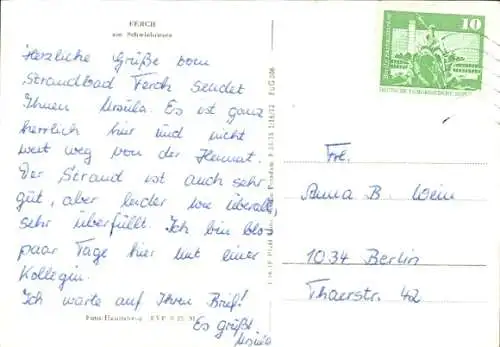 FERCH
am Schwielowsee
Herzliche Grüße vom
Strandbad Ferch sendet
Ihnen Ursula. Es ist ganz
herrlich hier und nicht
weit weg von der Heimat.
Der Strand ist auch sehr
gut, aber leider wie überall,
sehr überfüllt. Ich bin blos
paar Tage hier mit einer
Kollegin.
Ich warte auf Ihren Brief!
Es grüßt
Ursula
10
Frl.
Anna B. Wein
1034 Berlin
Thaerstr. 42